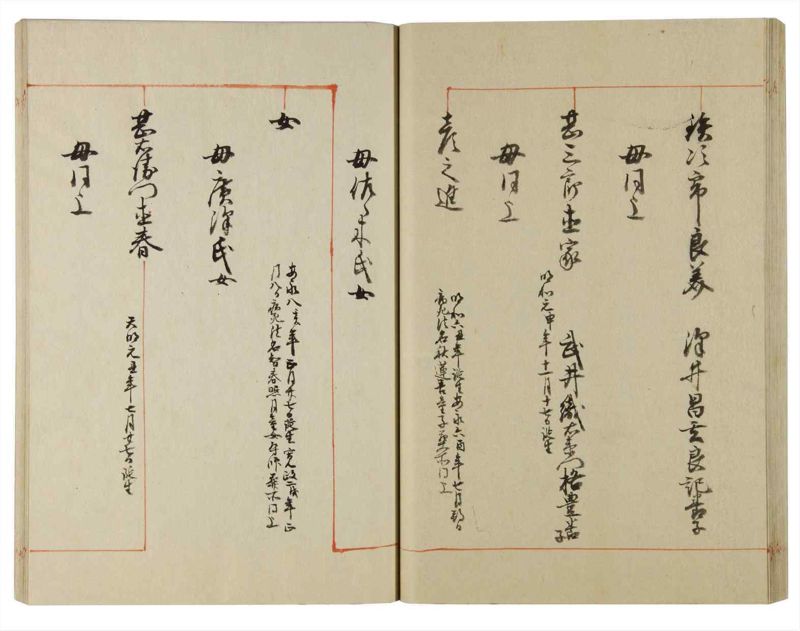 鉄次郎良美 澤井昌玄良記養子
母同上
甚三郎重家 武井織右衛門格豊養子
明和元申年十一月十七日誕生
母同上
彦之進
明和六丑年誕生安永六酉年七月
病死法名秋蓮善童子葬所同上
母佐々木氏女
女
安永八亥年正月廿七日誕生寛政二戌年正
月八日病死法名智春照月童女寺并葬所同上
母廣澤氏女
甚右衛門重春
天明元丑年七月廿七日誕生
母同上